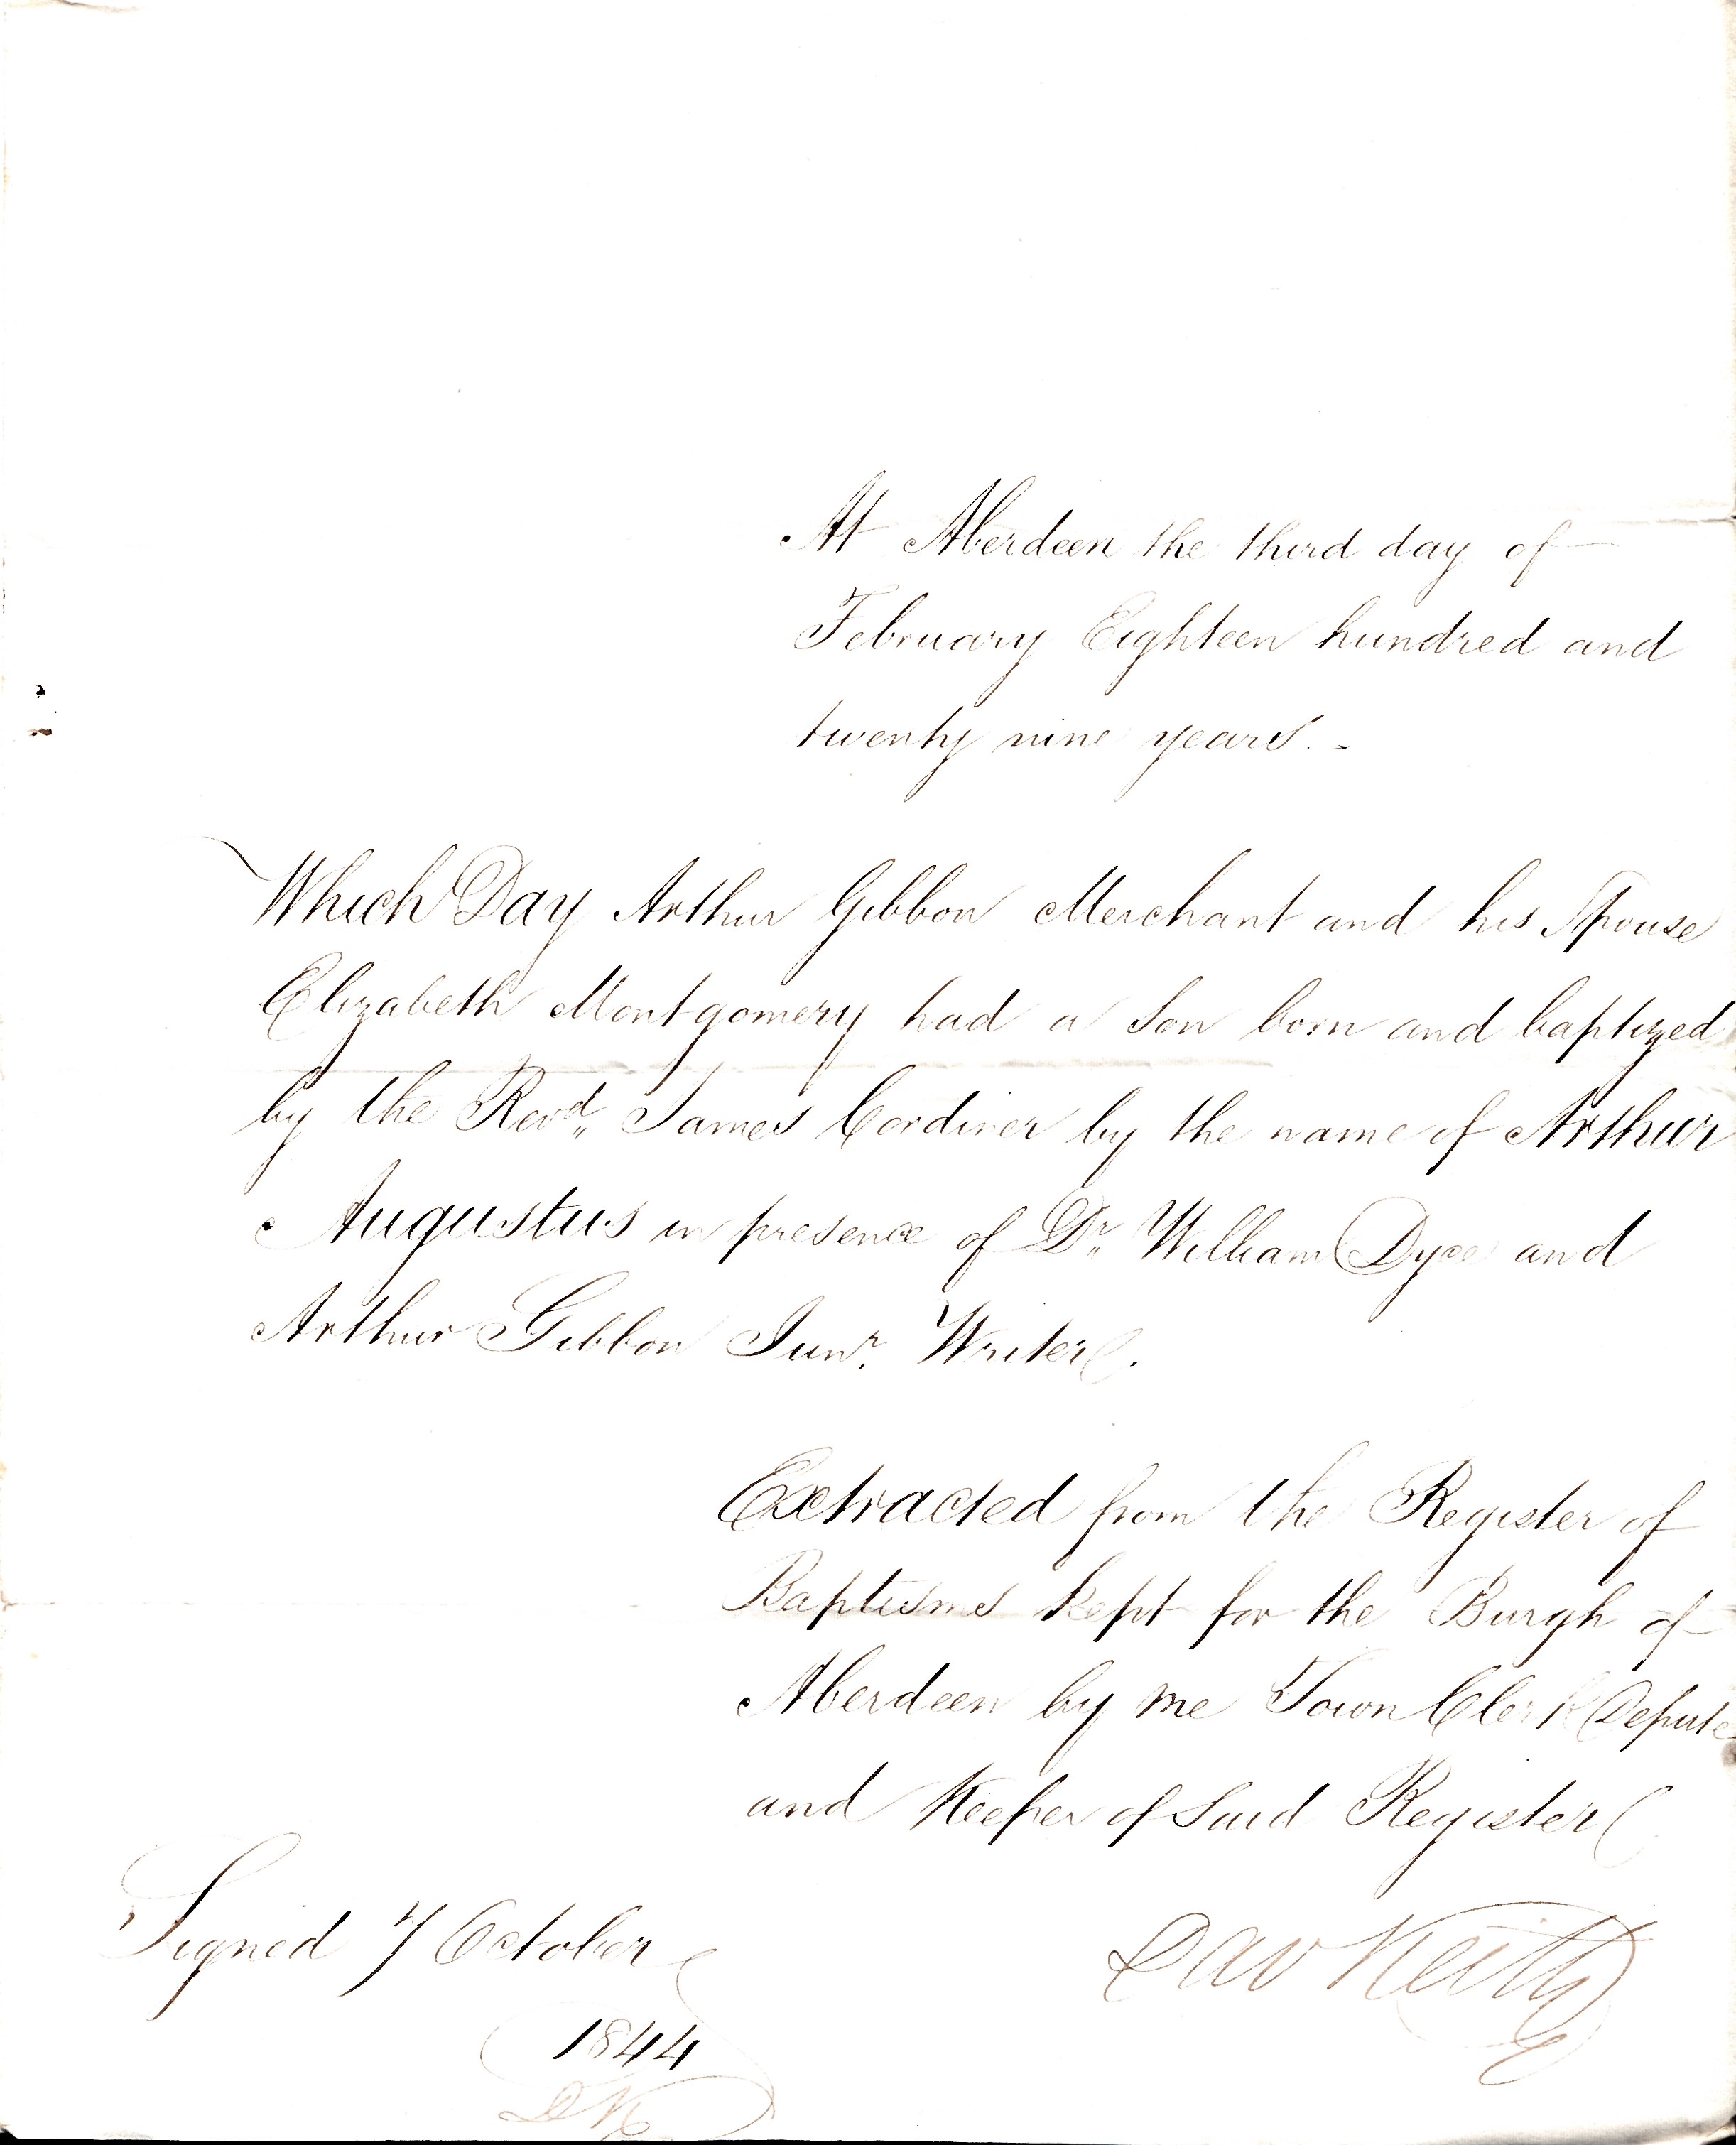 At Aberdeen the third day of
February Eighteen hundred and
twenty nine years. -
Which Day Arthur Gibbon Merchant and his Spouse
Elizabeth Montgomery had a Son born and baptized
by the Revd. James Cordiner by the name of Arthur
Augustus in presence of Dr. William Dyce and
Arthur Gibbon Junr. Writer.
Extracted from the Register of
Baptisms kept for the Burgh of
Aberdeen by me Town Clerk Depute
and Keeper of Said Register
Signed 7 October
Dav Keith
1844
DK